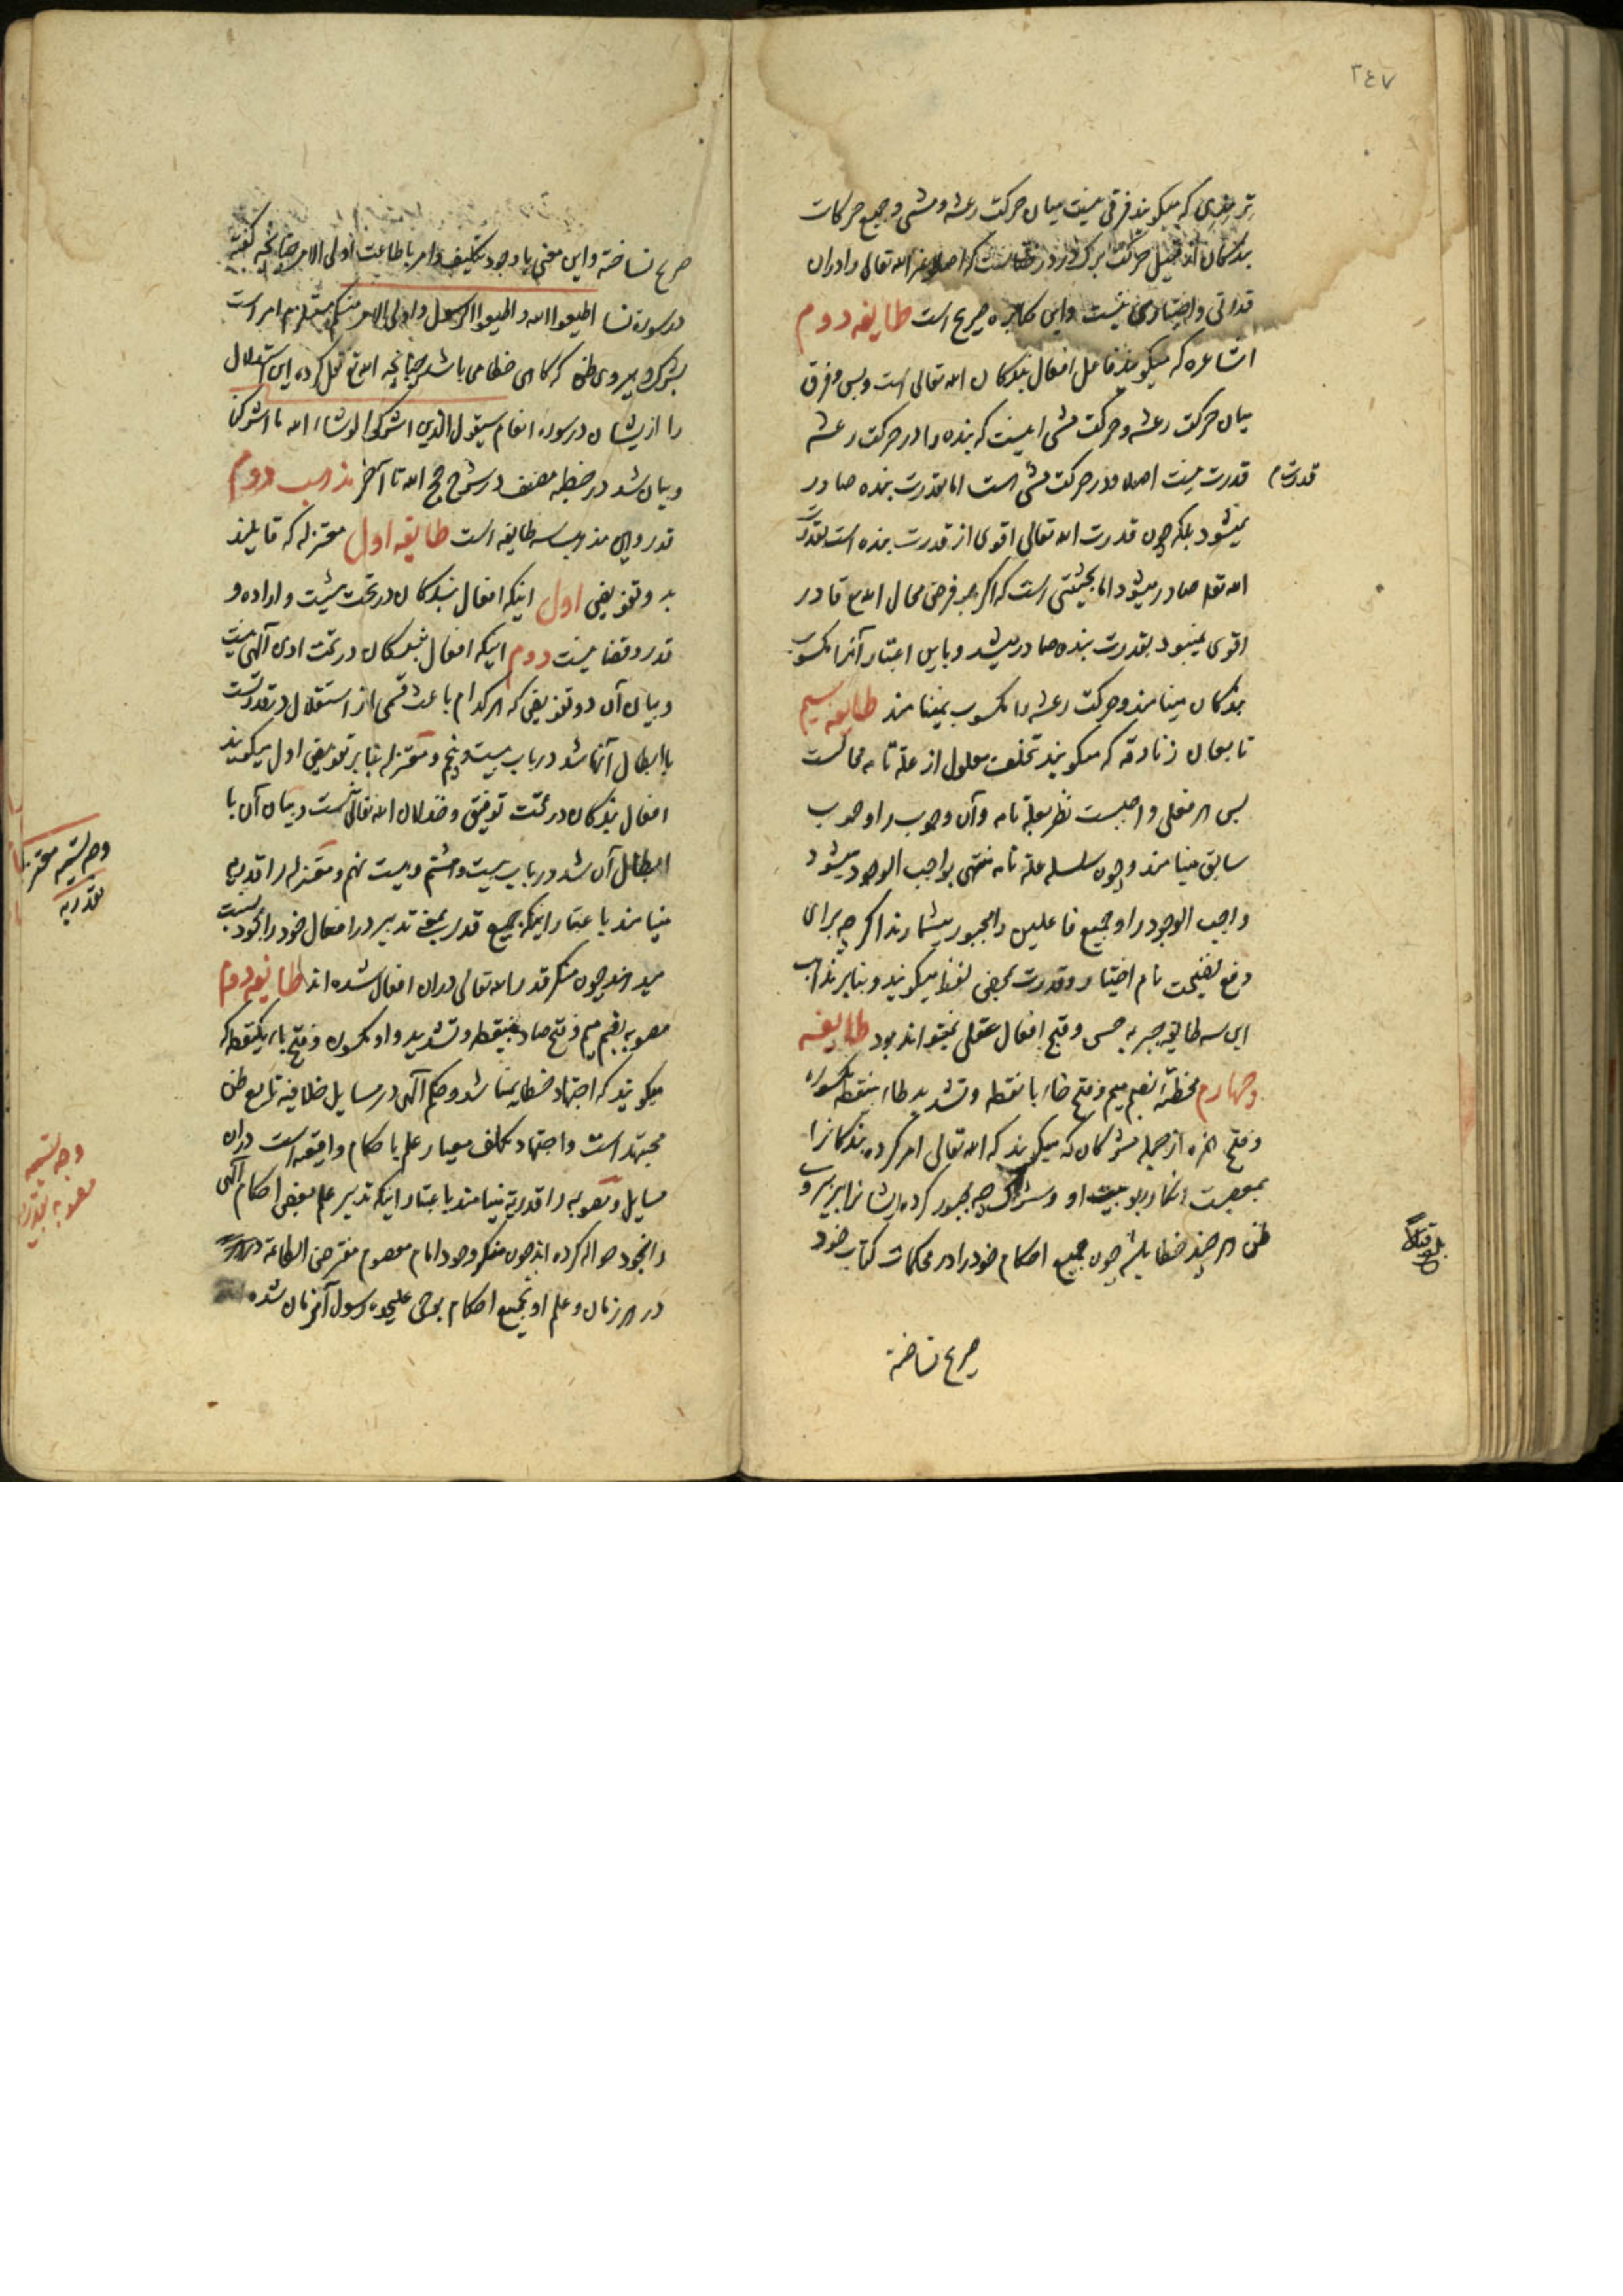 ٣٤٧
ترمذی که میکویند فرقی نیست میان حرکت رعشه و مشی و جمیع حرکات
بندکان از قبیل حرکت برک در درختست که اصلا غیر الله تعالی را در ان
قدرتی و اختیاری نیست و این مکابره صریح است طایفه دوم
اشاعره که میکویند فاعل افعال بندکان الله تعالی است و بس و فرق
میان حرکت رعشه و حرکت مشی اینست که بنده را در حرکت رعشه
قدرت نیست اصلا و در حرکت مشی است اما بقدرت بنده صادر
قدرت م
نمیشود بلکه چون قدرت الله تعالی اقوی از قدرت بنده است بقدرت
الله تعا صادر میشود اما بحیثیتی است که اکر بفرض محال الله تع قادر
اقوی نمیبود بقدرت بنده صادر میشد و باین اعتبار آنرا مکسوب
بندکان مینامند و حرکت رعشه را مکسوب نمینامند طایفه سیم
تابعان زنادقه که میکویند تخلف معلول از علة تامه محالست
پس هر فعلی واجبست نظر بعلة تامه و آن وجوب را وجوب
سابق مینامند و چون سلسله علة تامه منتهی بواجب الوجود میشود
واجب الوجود را و جمیع فاعلین را مجبور میشمارند اکر چه برای
دفع تفضیحت نام اختیار و قدرت بمحض لفظ میکویند و بنابر مذاهب
این سه طایفه جبریه حسن و قبح افعال عقلی نمیتواند بود طایفه
چهارم مخطئه بضم میم و فتح خاء با نقطه و تشدید طاء بینقطه مکسوره
و فتح همزه از جمله مشرکان که میکویند که الله تعالی امر کرده بندکانرا
بمعصیت انکار ربوبیت او و شرک چه مجبور کرده ایشانرا بر پیروی
ظن هر چند خطا باشد چون جمیع احکام خود را در محکمات کتاب خود
بلغ قبالا
صریح نساخته
صریح نساخته و این معنی با وجود تکلیف و امر باطاعت اولی الامر چنانچه کفته
در سوره نسا اطیعوا الله و اطیعوا الرسول و اولی الامر منکم مستلزم امر است
بشرک و پیروی ظن که کاهی خطا می باشد چنانچه الله تع نقل کرده این استدلال
را از یشان در سوره انعام سیقول الذین اشرکوا لو شاء الله ما اشرکنا
و بیان شد در خطبه مصنف در شرح حجج الله تا آخر مذهب دوم
قدر و این مذهب سه طایفه است طایفه اول معتزله که قایلند
بدو تفویض اول اینکه افعال بندکان در تحت مشیت و اراده و
قدر و قضا نیست دوم اینکه افعال بندکان در تحت اذن آلهی نیست
و بیان آن دو تفویض که هر کدام باعث قسمی از استقلال در قدرتست
با ابطال آنها شد در باب بیست و پنجم و معتزله بنابر تفویض اول میکویند
افعال بندکان در تحت توفیق و خذلان الله تعالی نیست و بیان آن با
ابطال آن شد در باب بیست و هشتم و بیست نهم و معتزله را قدریه
وجه تسمیه معتزله
بقدریه
مینامند باعتبار اینکه جمیع قدر بمعنی تدبیر در افعال خود را بخود نسبت
میدهند چون منکر قدر الله تعالی در ان افعال شده اند طایفه دوم
مصوبه بضم میم و فتح صاد بینقطه و تشدید واو مکسوره و فتح باء یکنقطه که
میکویند که اجتهاد خطا نمیباشد و حکم آلهی در مسایل خلافیه تابع ظن
مجتهد است و اجتهاد مکلف معیار علم باحکام واقعه است در ان
وجه تسمیه
مصوبه بقدریه
مسایل و مصوبه را قدریه مینامند باعتبار اینکه تدبیر علم ببعض احکام آلهی
را بخود حواله کرده اند چون منکر وجود امام معصوم مفترض الطاعة
در هر زمان و علم او بجمیع احکام بوحی علیحده رسول آخر زمان شده